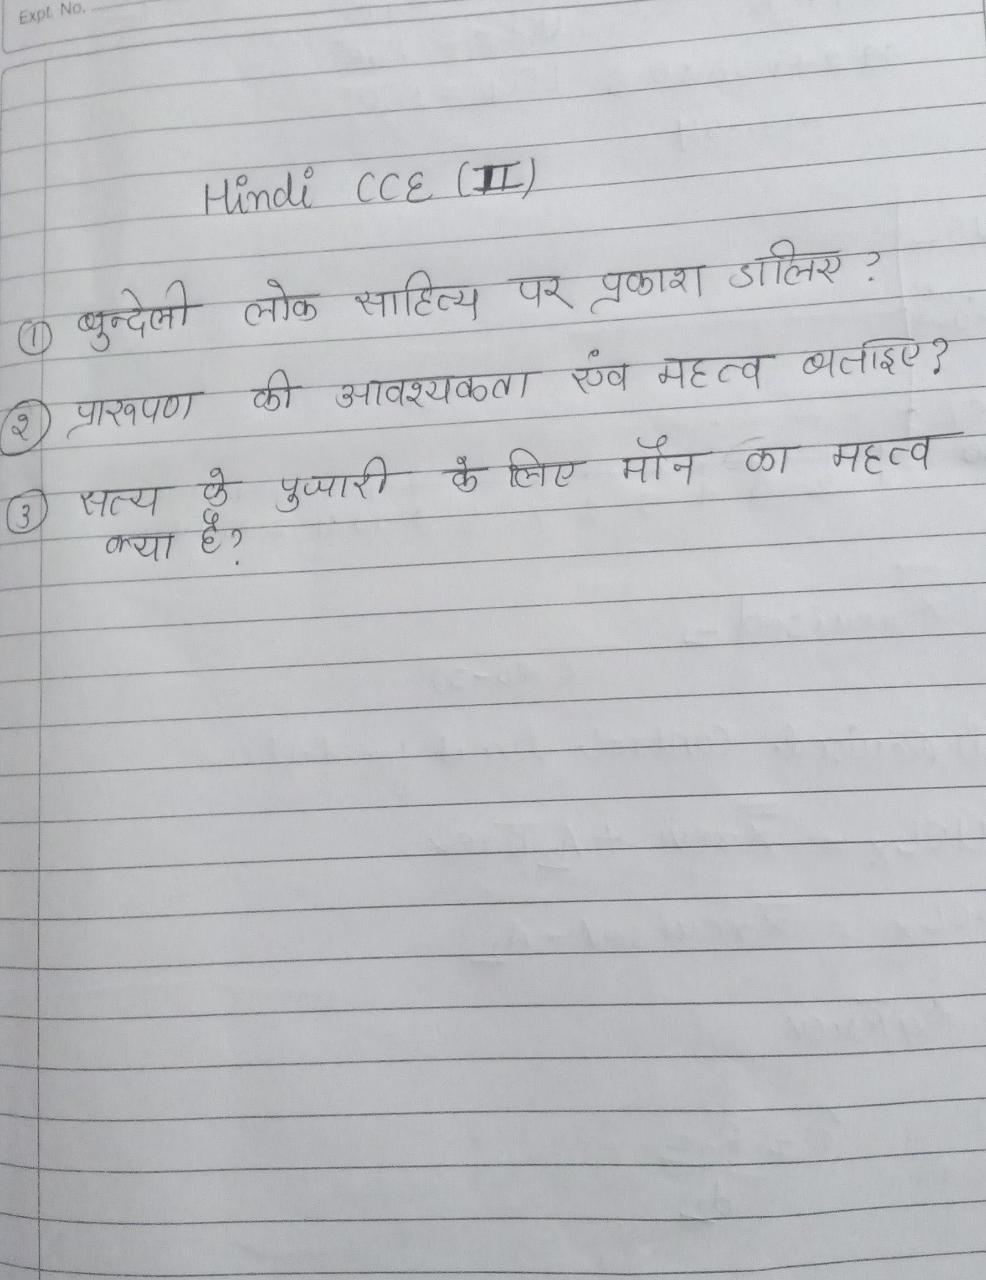 Expt. No.
Hindi CCE (II)
① बुन्देली लोक साहित्य पर प्रकाश डालिए ?
② प्रारूपण की आवश्यकता एंव महत्व बताइए ?
③ सत्य के पुजारी के लिए मौन का महत्व
क्या है ?